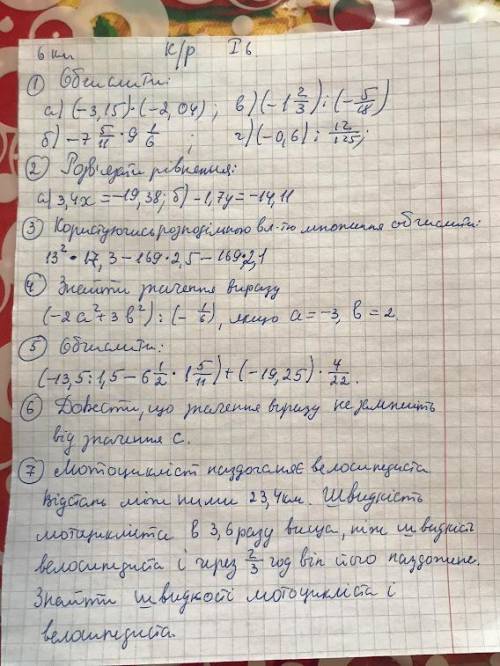 6 кл К/р I в.
① Обчислити:
а) (-3,15)·(-2,04); в) (-1 2/3) : (-5/18)
б) -7 5/11 · 9 1/6 ; г) (-0,6) : 12/125;
② Розв'язати рівняння:
а) 3,4x = -19,38; б) -1,7y = -14,11
③ Користуючись розподільною вл-тю множення обчислити:
13² · 17,3 - 169 · 2,5 - 169 · 2,1
④ Знайти значення виразу
(-2a² + 3b²) : (-1/6), якщо a = -3, b = 2.
⑤ Обчислити:
(-13,5 : 1,5 - 6 1/2 · 1 5/11) + (-19,25) · 4/22.
⑥ Довести, що значення виразу не залежить
від значення c.
⑦ Мотоцикліст наздоганяє велосипедиста
Відстань між ними 23,4км. Швидкість
мотоцикліста в 3,6 разу вища, ніж швидкість
велосипедиста і через 2/3 год він його наздожене.
Знайти швидкості мотоцикліста і
велосипедиста.